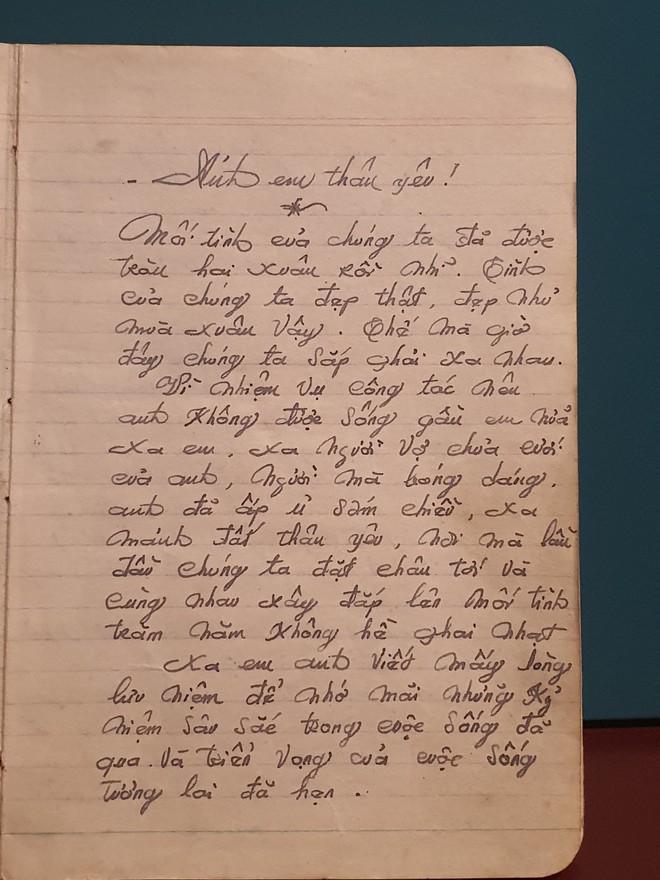 - Ánh em thân yêu!
Mối tình của chúng ta đã được
tròn hai xuân rồi nhỉ. Tình
của chúng ta đẹp thật, đẹp như
mùa xuân vậy. Thế mà giờ
đây chúng ta sắp phải xa nhau.
Vì nhiệm vụ công tác nên
anh không được sống gần em nữa
xa em, xa người vợ chưa cưới
của anh, người mà bóng dáng.
anh đã ấp ủ sớm chiều, xa
mảnh đất thân yêu, nơi mà lần
đầu chúng ta đặt chân tới và
cùng nhau xây đắp lên mối tình
trăm năm không hề phai nhạt
Xa em anh viết mấy lòng
lưu niệm để nhớ mãi những kỷ
niệm sâu sắc trong cuộc sống đã
qua. Và triển vọng của cuộc sống
tương lai đã hẹn.